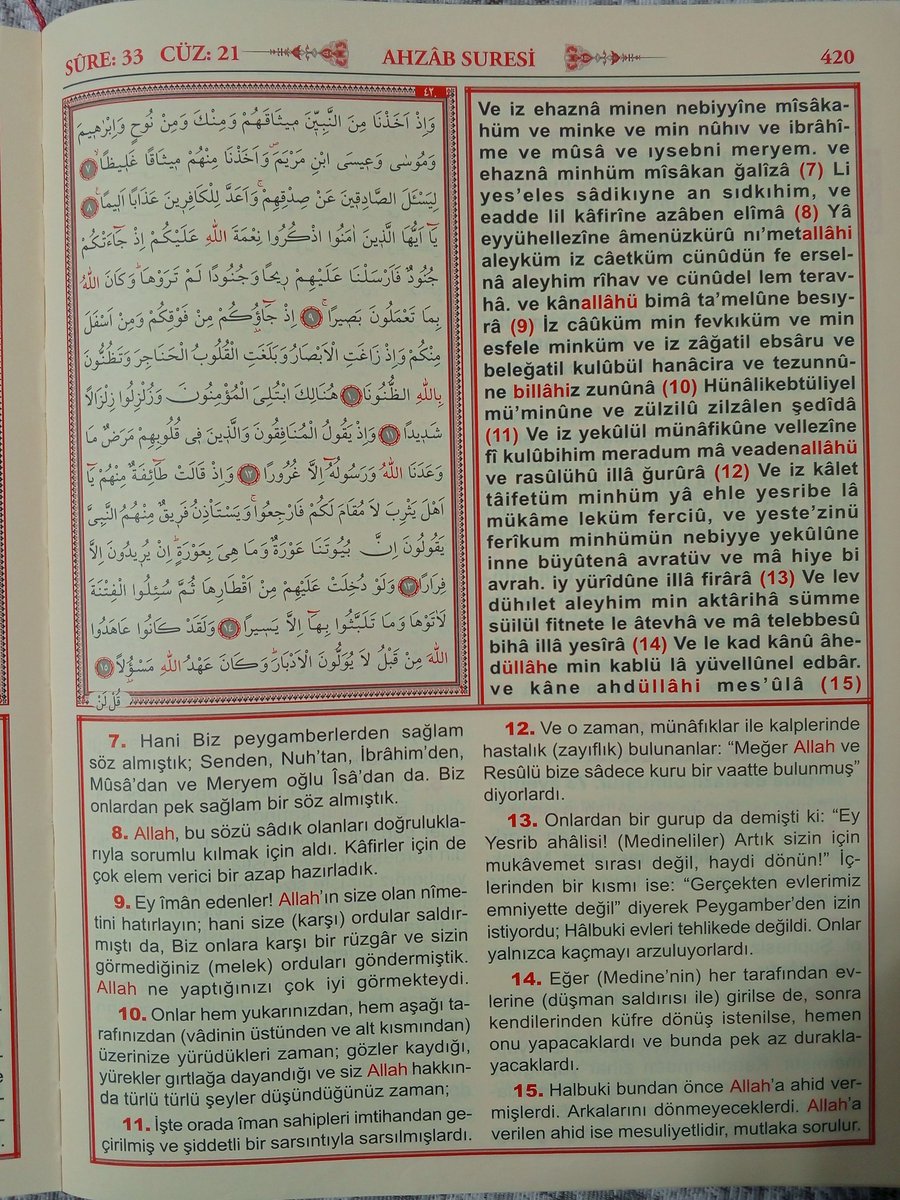 SÛRE: 33 CÜZ: 21
AHZÂB SURESİ
420
٤٢٠
وَاِذْ اَخَذْنَا مِنَ النَّبِيّ۪نَ م۪يثَاقَهُمْ وَمِنْكَ وَمِنْ نُوحٍ وَاِبْرٰه۪يمَ
وَمُوسٰى وَع۪يسَى ابْنِ مَرْيَمَۖ وَاَخَذْنَا مِنْهُمْ م۪يثَاقًا غَل۪يظًاۙ ﴿٧﴾
لِيَسْـَٔلَ الصَّادِق۪ينَ عَنْ صِدْقِهِمْۚ وَاَعَدَّ لِلْكَافِر۪ينَ عَذَابًا اَل۪يمًا۟ ﴿٨﴾
يَٓا اَيُّهَا الَّذ۪ينَ اٰمَنُوا اذْكُرُوا نِعْمَةَ اللّٰهِ عَلَيْكُمْ اِذْ جَٓاءَتْكُمْ
جُنُودٌ فَاَرْسَلْنَا عَلَيْهِمْ ر۪يحًا وَجُنُودًا لَمْ تَرَوْهَاۜ وَكَانَ اللّٰهُ
بِمَا تَعْمَلُونَ بَص۪يرًاۚ ﴿٩﴾ اِذْ جَٓاؤُ۫كُمْ مِنْ فَوْقِكُمْ وَمِنْ اَسْفَلَ
مِنْكُمْ وَاِذْ زَاغَتِ الْاَبْصَارُ وَبَلَغَتِ الْقُلُوبُ الْحَنَاجِرَ وَتَظُنُّونَ
بِاللّٰهِ الظُّنُونَا ﴿١٠﴾ هُنَالِكَ ابْتُلِيَ الْمُؤْمِنُونَ وَزُلْزِلُوا زِلْزَالًا
شَد۪يدًا ﴿١١﴾ وَاِذْ يَقُولُ الْمُنَافِقُونَ وَالَّذ۪ينَ ف۪ي قُلُوبِهِمْ مَرَضٌ مَا
وَعَدَنَا اللّٰهُ وَرَسُولُهُٓ اِلَّا غُرُورًا ﴿١٢﴾ وَاِذْ قَالَتْ طَٓائِفَةٌ مِنْهُمْ يَٓا
اَهْلَ يَثْرِبَ لَا مُقَامَ لَكُمْ فَارْجِعُواۚ وَيَسْتَأْذِنُ فَر۪يقٌ مِنْهُمُ النَّبِيَّ
يَقُولُونَ اِنَّ بُيُوتَنَا عَوْرَةٌ وَمَا هِيَ بِعَوْرَةٍۚ اِنْ يُر۪يدُونَ اِلَّا
فِرَارًا ﴿١٣﴾ وَلَوْ دُخِلَتْ عَلَيْهِمْ مِنْ اَقْطَارِهَا ثُمَّ سُئِلُوا الْفِتْنَةَ
لَاٰتَوْهَا وَمَا تَلَبَّثُوا بِهَٓا اِلَّا يَس۪يرًا ﴿١٤﴾ وَلَقَدْ كَانُوا عَاهَدُوا
اللّٰهَ مِنْ قَبْلُ لَا يُوَلُّونَ الْاَدْبَارَۜ وَكَانَ عَهْدُ اللّٰهِ مَسْؤُ۫لًا ﴿١٥﴾
قُلْ لَنْ
Ve iz ehaznâ minen nebiyyîne mîsâka-
hüm ve minke ve min nûhıv ve ibrâhî-
me ve mûsâ ve ıysebni meryem. ve
ehaznâ minhüm mîsâkan ğalîzâ (7) Li
yes’eles sâdikıyne an sıdkıhim, ve
eadde lil kâfirîne azâben elîmâ (8) Yâ
eyyühellezîne âmenüzkürû nı’metallâhi
aleyküm iz câetküm cünûdün fe ersel-
nâ aleyhim rîhav ve cünûdel lem terav-
hâ. ve kânallâhü bimâ ta’melûne besıy-
râ (9) İz câûküm min fevkıküm ve min
esfele minküm ve iz zâğatil ebsâru ve
beleğatil kulûbül hanâcira ve tezunnû-
ne billâhiz zunûnâ (10) Hünâlikebtüliyel
mü’minûne ve zülzilû zilzâlen şedîdâ
(11) Ve iz yekûlül münâfikûne vellezîne
fî kulûbihim meradum mâ veadenallâhü
ve rasûlühû illâ ğurûrâ (12) Ve iz kâlet
tâifetüm minhüm yâ ehle yesribe lâ
mükâme leküm ferciû, ve yeste’zinü
ferîkum minhümün nebiyye yekûlûne
inne büyûtenâ avratüv ve mâ hiye bi
avrah. iy yürîdûne illâ firârâ (13) Ve lev
dühılet aleyhim min aktârihâ sümme
süilül fitnete le âtevhâ ve mâ telebbesû
bihâ illâ yesîrâ (14) Ve le kad kânû âhe-
düllâhe min kablü lâ yüvellûnel edbâr.
ve kâne ahdüllâhi mes’ûlâ (15)
7. Hani Biz peygamberlerden sağlam
söz almıştık; Senden, Nuh’tan, İbrâhim’den,
Mûsâ’dan ve Meryem oğlu Îsâ’dan da. Biz
onlardan pek sağlam bir söz almıştık.
8. Allah, bu sözü sâdık olanları doğrulukla-
rıyla sorumlu kılmak için aldı. Kâfirler için de
çok elem verici bir azap hazırladık.
9. Ey îmân edenler! Allah’ın size olan nîme-
tini hatırlayın; hani size (karşı) ordular saldır-
mıştı da, Biz onlara karşı bir rüzgâr ve sizin
görmediğiniz (melek) orduları göndermiştik.
Allah ne yaptığınızı çok iyi görmekteydi.
10. Onlar hem yukarınızdan, hem aşağı ta-
rafınızdan (vâdinin üstünden ve alt kısmından)
üzerinize yürüdükleri zaman; gözler kaydığı,
yürekler gırtlağa dayandığı ve siz Allah hakkın-
da türlü türlü şeyler düşündüğünüz zaman;
11. İşte orada îman sahipleri imtihandan ge-
çirilmiş ve şiddetli bir sarsıntıyla sarsılmışlardı.
12. Ve o zaman, münâfıklar ile kalplerinde
hastalık (zayıflık) bulunanlar: “Meğer Allah ve
Resûlü bize sâdece kuru bir vaatte bulunmuş”
diyorlardı.
13. Onlardan bir gurup da demişti ki: “Ey
Yesrib ahâlisi! (Medineliler) Artık sizin için
mukâvemet sırası değil, haydi dönün!” İç-
lerinden bir kısmı ise: “Gerçekten evlerimiz
emniyette değil” diyerek Peygamber’den izin
istiyordu; Hâlbuki evleri tehlikede değildi. Onlar
yalnızca kaçmayı arzuluyorlardı.
14. Eğer (Medine’nin) her tarafından ev-
lerine (düşman saldırısı ile) girilse de, sonra
kendilerinden küfre dönüş istenilse, hemen
onu yapacaklardı ve bunda pek az durakla-
yacaklardı.
15. Halbuki bundan önce Allah’a ahid ver-
mişlerdi. Arkalarını dönmeyeceklerdi. Allah’a
verilen ahid ise mesuliyetlidir, mutlaka sorulur.